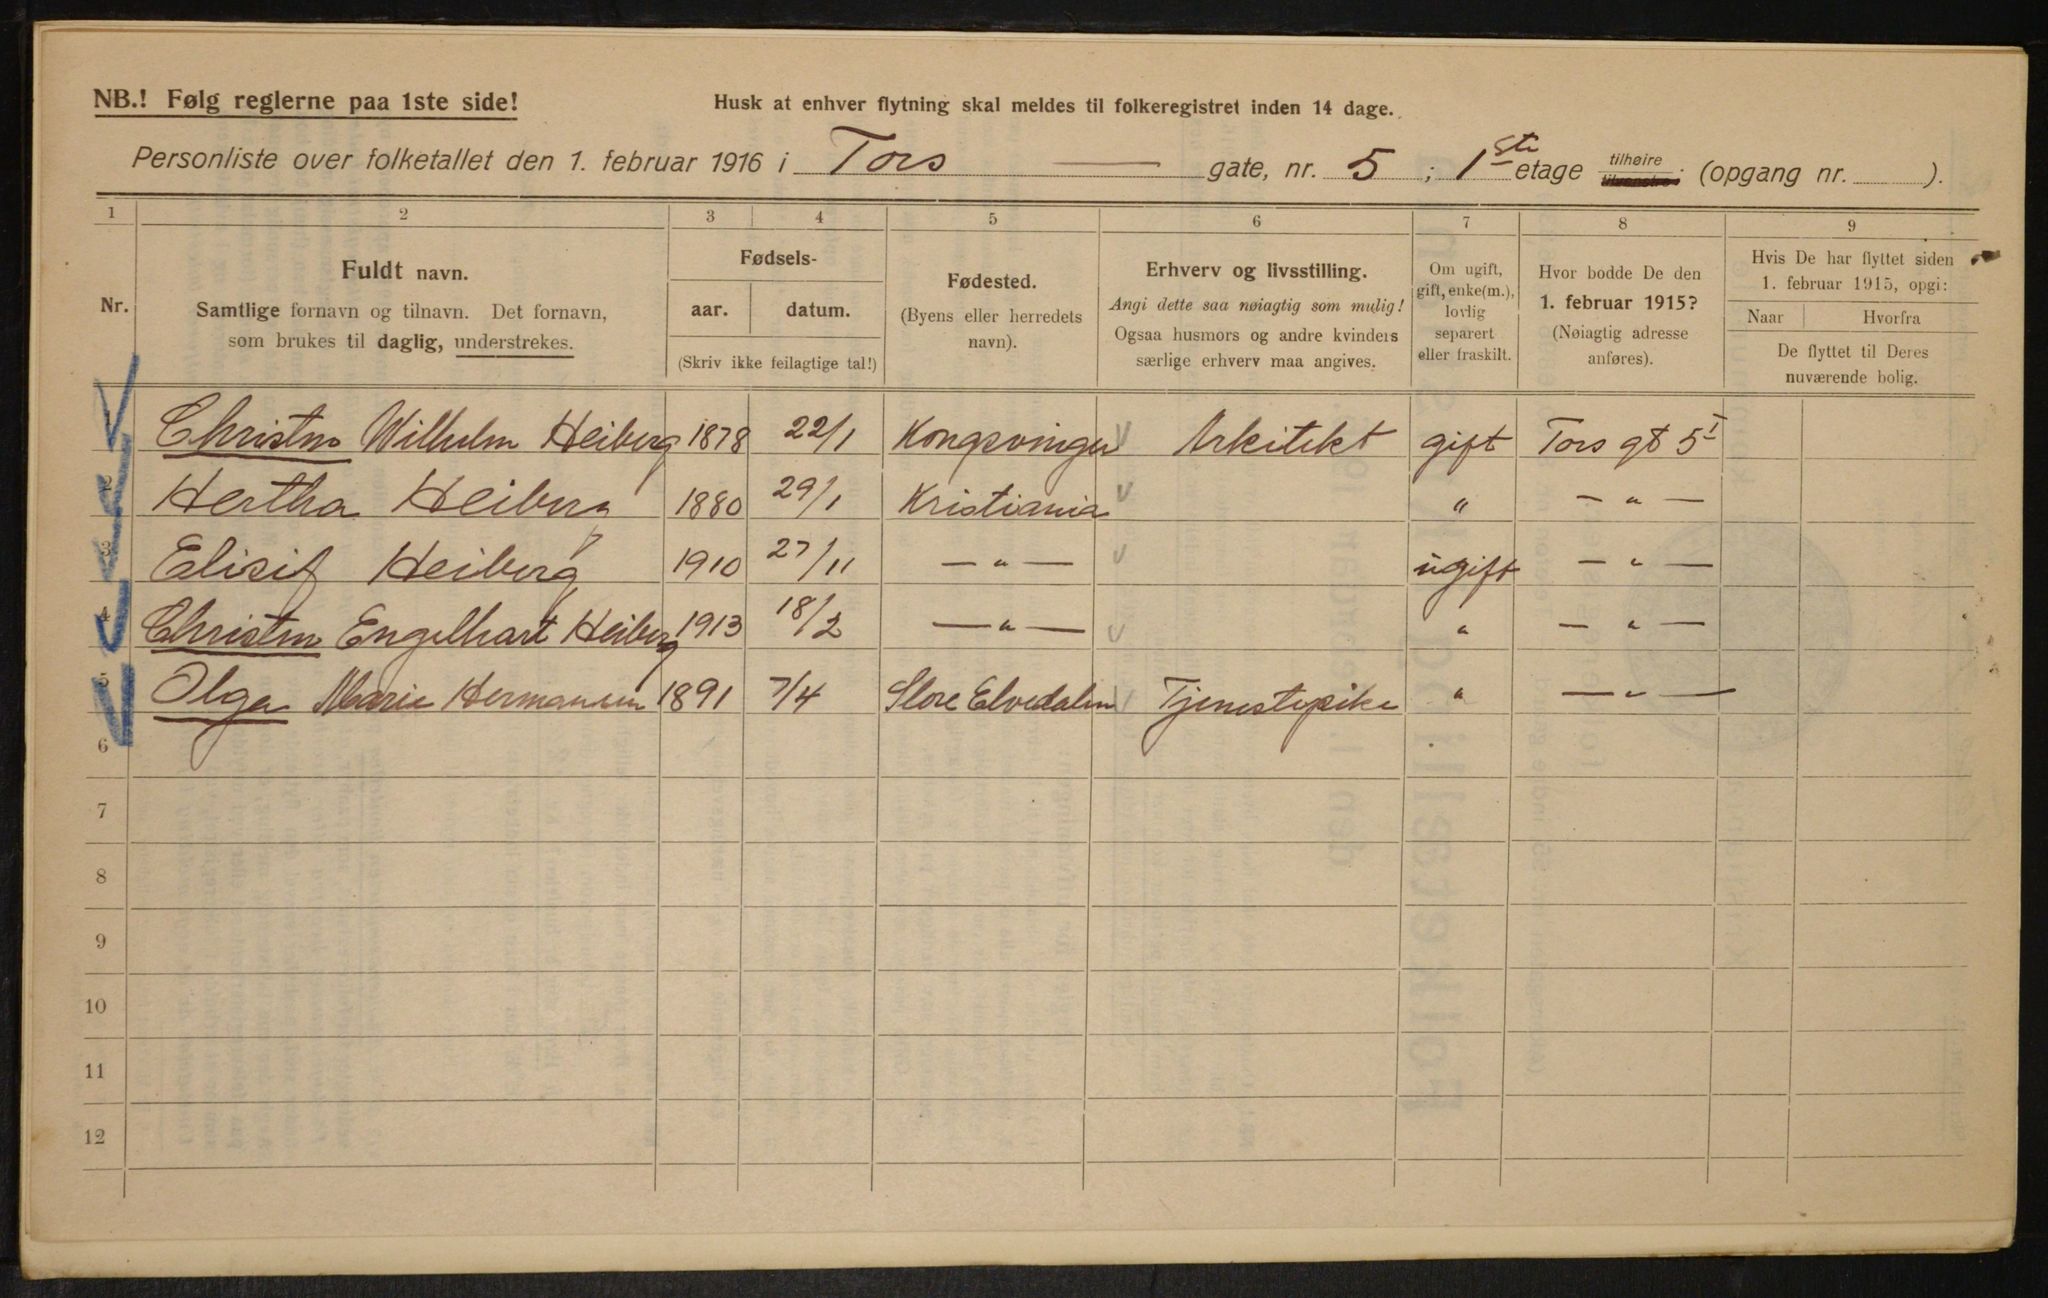 NB.! Følg reglerne paa 1ste side!
Husk at enhver flytning skal meldes til folkeregistret inden 14 dage.
Personliste over folketallet den 1. februar 1916 i Tors — gate, nr. 5 ; 1ste etage tilhøire tilvenstre (opgang nr. ).
1 2 3 4 5 6 7 8 9
Nr.
Fuldt navn.
Samtlige fornavn og tilnavn. Det fornavn,
som brukes til daglig, understrekes.
Fødsels-
aar. datum.
(Skriv ikke feilagtige tal!)
Fødested.
(Byens eller herredets
navn).
Erhverv og livsstilling.
Angi dette saa nøiagtig som mulig!
Ogsaa husmors og andre kvinders
særlige erhverv maa angives.
Om ugift,
gift, enke(m.),
lovlig
separert
eller fraskilt.
Hvor bodde De den
1. februar 1915?
(Nøiagtig adresse
anføres).
Hvis De har flyttet siden
1. februar 1915, opgi:
Naar Hvorfra
De flyttet til Deres
nuværende bolig.
1 Christen Wilhelm Heiberg 1878 22/1 Kongsvinger Arkitekt gift Tors gt 5 I
2 Hertha Heiberg 1880 29/1 Kristiania " — " —
3 Elisif Heiberg 1910 27/11 — " — ugift — " —
4 Christen Engelhart Heiberg 1913 18/2 — " — " — " —
5 Olga Marie Hermansen 1891 7/4 Store Elvedalen Tjenestepike " — " —
6
7
8
9
10
11
12